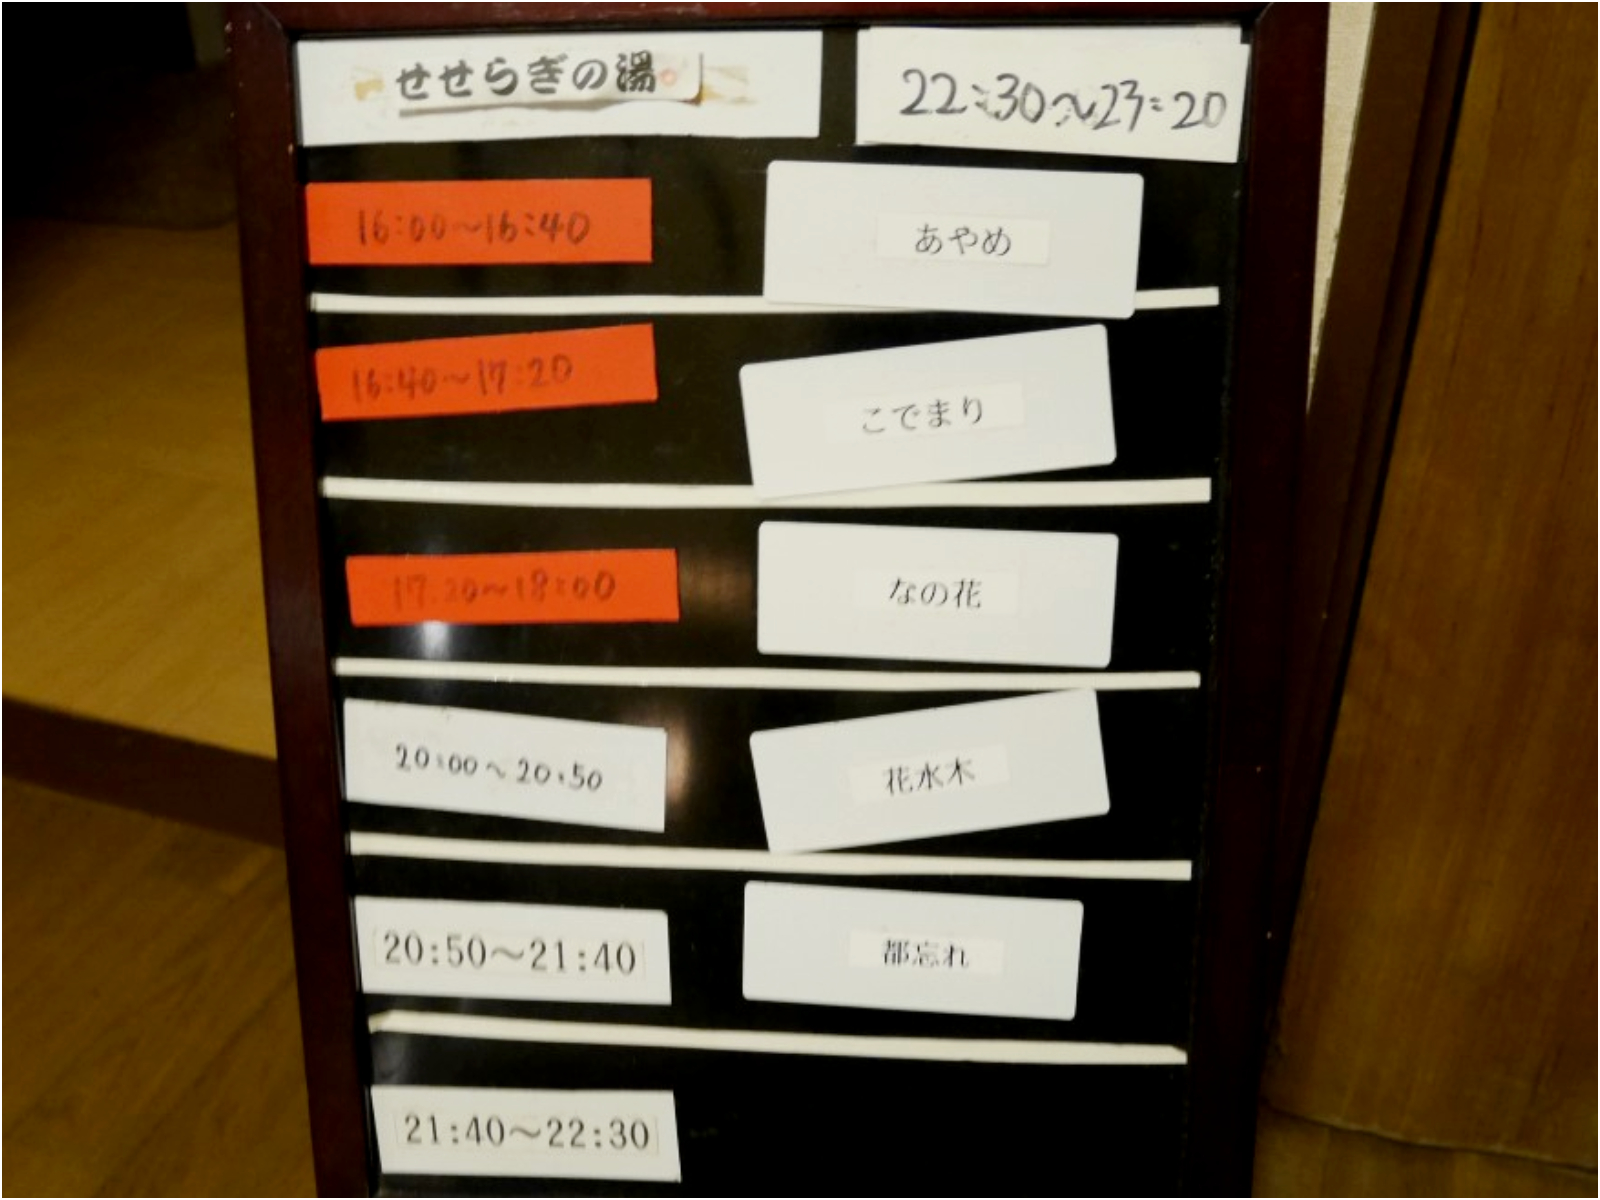 せせらぎの湯
22:30～23:20
16:00～16:40
あやめ
16:40～17:20
こでまり
17:20～18:00
なの花
20:00～20:50
花水木
20:50～21:40
都忘れ
21:40～22:30